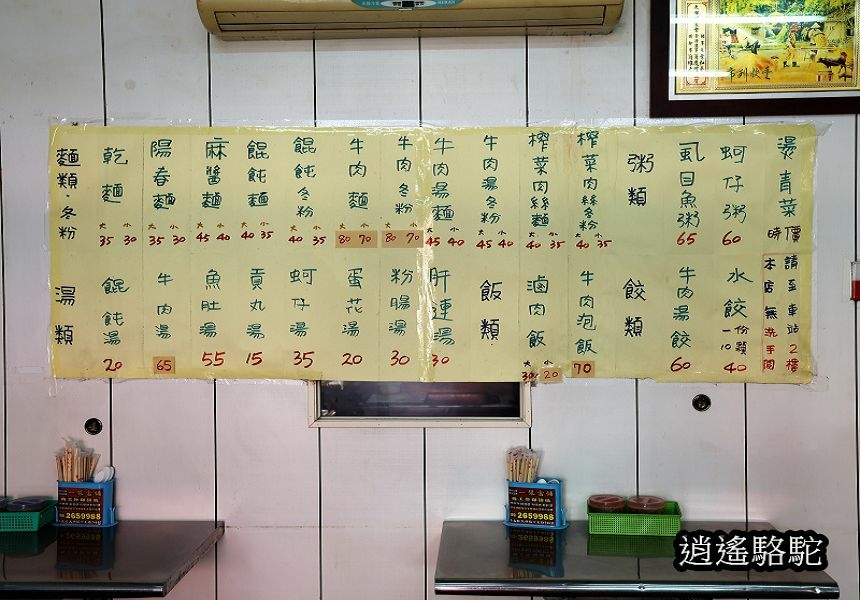 麵類·冬粉
乾麵 大35 小30
陽春麵 大35 小30
麻醬麵 大45 小40
餛飩麵 大40 小35
餛飩冬粉 大40 小35
牛肉麵 大80 小70
牛肉冬粉 大80 小70
牛肉湯麵 大45 小40
牛肉湯冬粉 大45 小40
榨菜肉絲麵 大40 小35
榨菜肉絲冬粉 大40 小35
粥類
虱目魚粥 65
蚵仔粥 60
燙青菜 時價
湯類
餛飩湯 20
牛肉湯 65
魚肚湯 55
貢丸湯 15
蚵仔湯 35
蛋花湯 20
粉腸湯 30
肝連湯 30
飯類
滷肉飯 大30 小20
牛肉泡飯 70
餃類
牛肉湯餃 60
水餃 一份10顆 40
本店無洗手間
請至車站2樓
2659988
2659988
逍遙駱駝